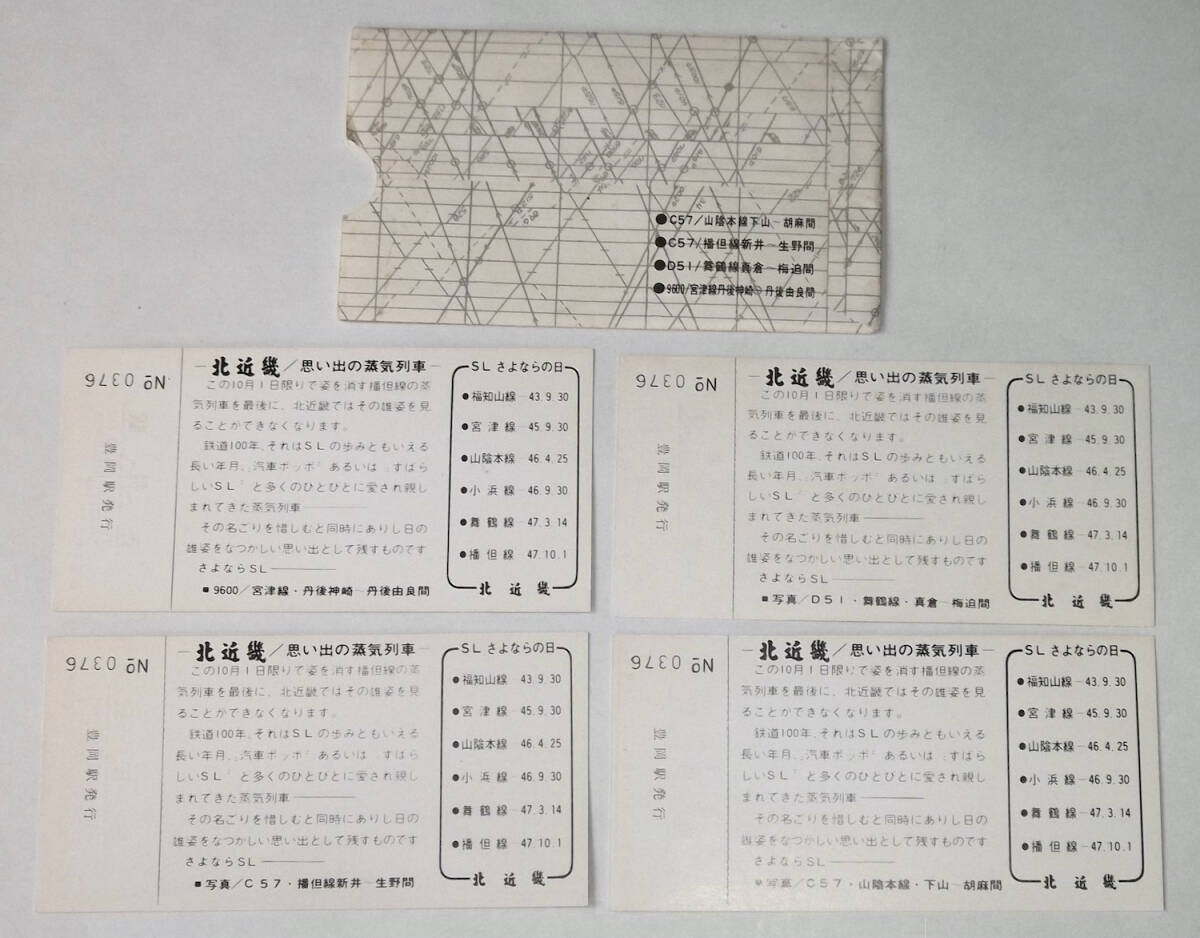 ●C57/山陰本線下山〜胡麻間
●C57/播但線新井〜生野間
●D51/舞鶴線真倉〜梅迫間
●9600/宮津線丹後神崎〜丹後由良間
№ 0376
豊岡駅発行
北近畿/思い出の蒸気列車
この10月1日限りで姿を消す播但線の蒸
気列車を最後に、北近畿ではその雄姿を見
ることができなくなります。
鉄道100年、それはSLの歩みともいえる
長い年月、〝汽車ポッポ〞あるいは〝すばら
しいSL〞と多くのひとびとに愛され親し
まれてきた蒸気列車―――
その名ごりを惜しむと同時にありし日の
雄姿をなつかしい思い出として残すものです
さよならSL―――
■9600/宮津線・丹後神崎〜丹後由良間
SLさよならの日
●福知山線―43.9.30
●宮津線―45.9.30
●山陰本線―46.4.25
●小浜線―46.9.30
●舞鶴線―47.3.14
●播但線―47.10.1
北近畿
№ 0376
豊岡駅発行
北近畿/思い出の蒸気列車
この10月1日限りで姿を消す播但線の蒸
気列車を最後に、北近畿ではその雄姿を見
ることができなくなります。
鉄道100年、それはSLの歩みともいえる
長い年月、〝汽車ポッポ〞あるいは〝すばら
しいSL〞と多くのひとびとに愛され親し
まれてきた蒸気列車―――
その名ごりを惜しむと同時にありし日の
雄姿をなつかしい思い出として残すものです
さよならSL―――
■写真/D51・舞鶴線・真倉〜梅迫間
SLさよならの日
●福知山線―43.9.30
●宮津線―45.9.30
●山陰本線―46.4.25
●小浜線―46.9.30
●舞鶴線―47.3.14
●播但線―47.10.1
北近畿
№ 0376
豊岡駅発行
北近畿/思い出の蒸気列車
この10月1日限りで姿を消す播但線の蒸
気列車を最後に、北近畿ではその雄姿を見
ることができなくなります。
鉄道100年、それはSLの歩みともいえる
長い年月、〝汽車ポッポ〞あるいは〝すばら
しいSL〞と多くのひとびとに愛され親し
まれてきた蒸気列車―――
その名ごりを惜しむと同時にありし日の
雄姿をなつかしい思い出として残すものです
さよならSL―――
■写真/C57・播但線新井〜生野間
SLさよならの日
●福知山線―43.9.30
●宮津線―45.9.30
●山陰本線―46.4.25
●小浜線―46.9.30
●舞鶴線―47.3.14
●播但線―47.10.1
北近畿
№ 0376
豊岡駅発行
北近畿/思い出の蒸気列車
この10月1日限りで姿を消す播但線の蒸
気列車を最後に、北近畿ではその雄姿を見
ることができなくなります。
鉄道100年、それはSLの歩みともいえる
長い年月、〝汽車ポッポ〞あるいは〝すばら
しいSL〞と多くのひとびとに愛され親し
まれてきた蒸気列車―――
その名ごりを惜しむと同時にありし日の
雄姿をなつかしい思い出として残すものです
さよならSL―――
■写真/C57・山陰本線・下山〜胡麻間
SLさよならの日
●福知山線―43.9.30
●宮津線―45.9.30
●山陰本線―46.4.25
●小浜線―46.9.30
●舞鶴線―47.3.14
●播但線―47.10.1
北近畿